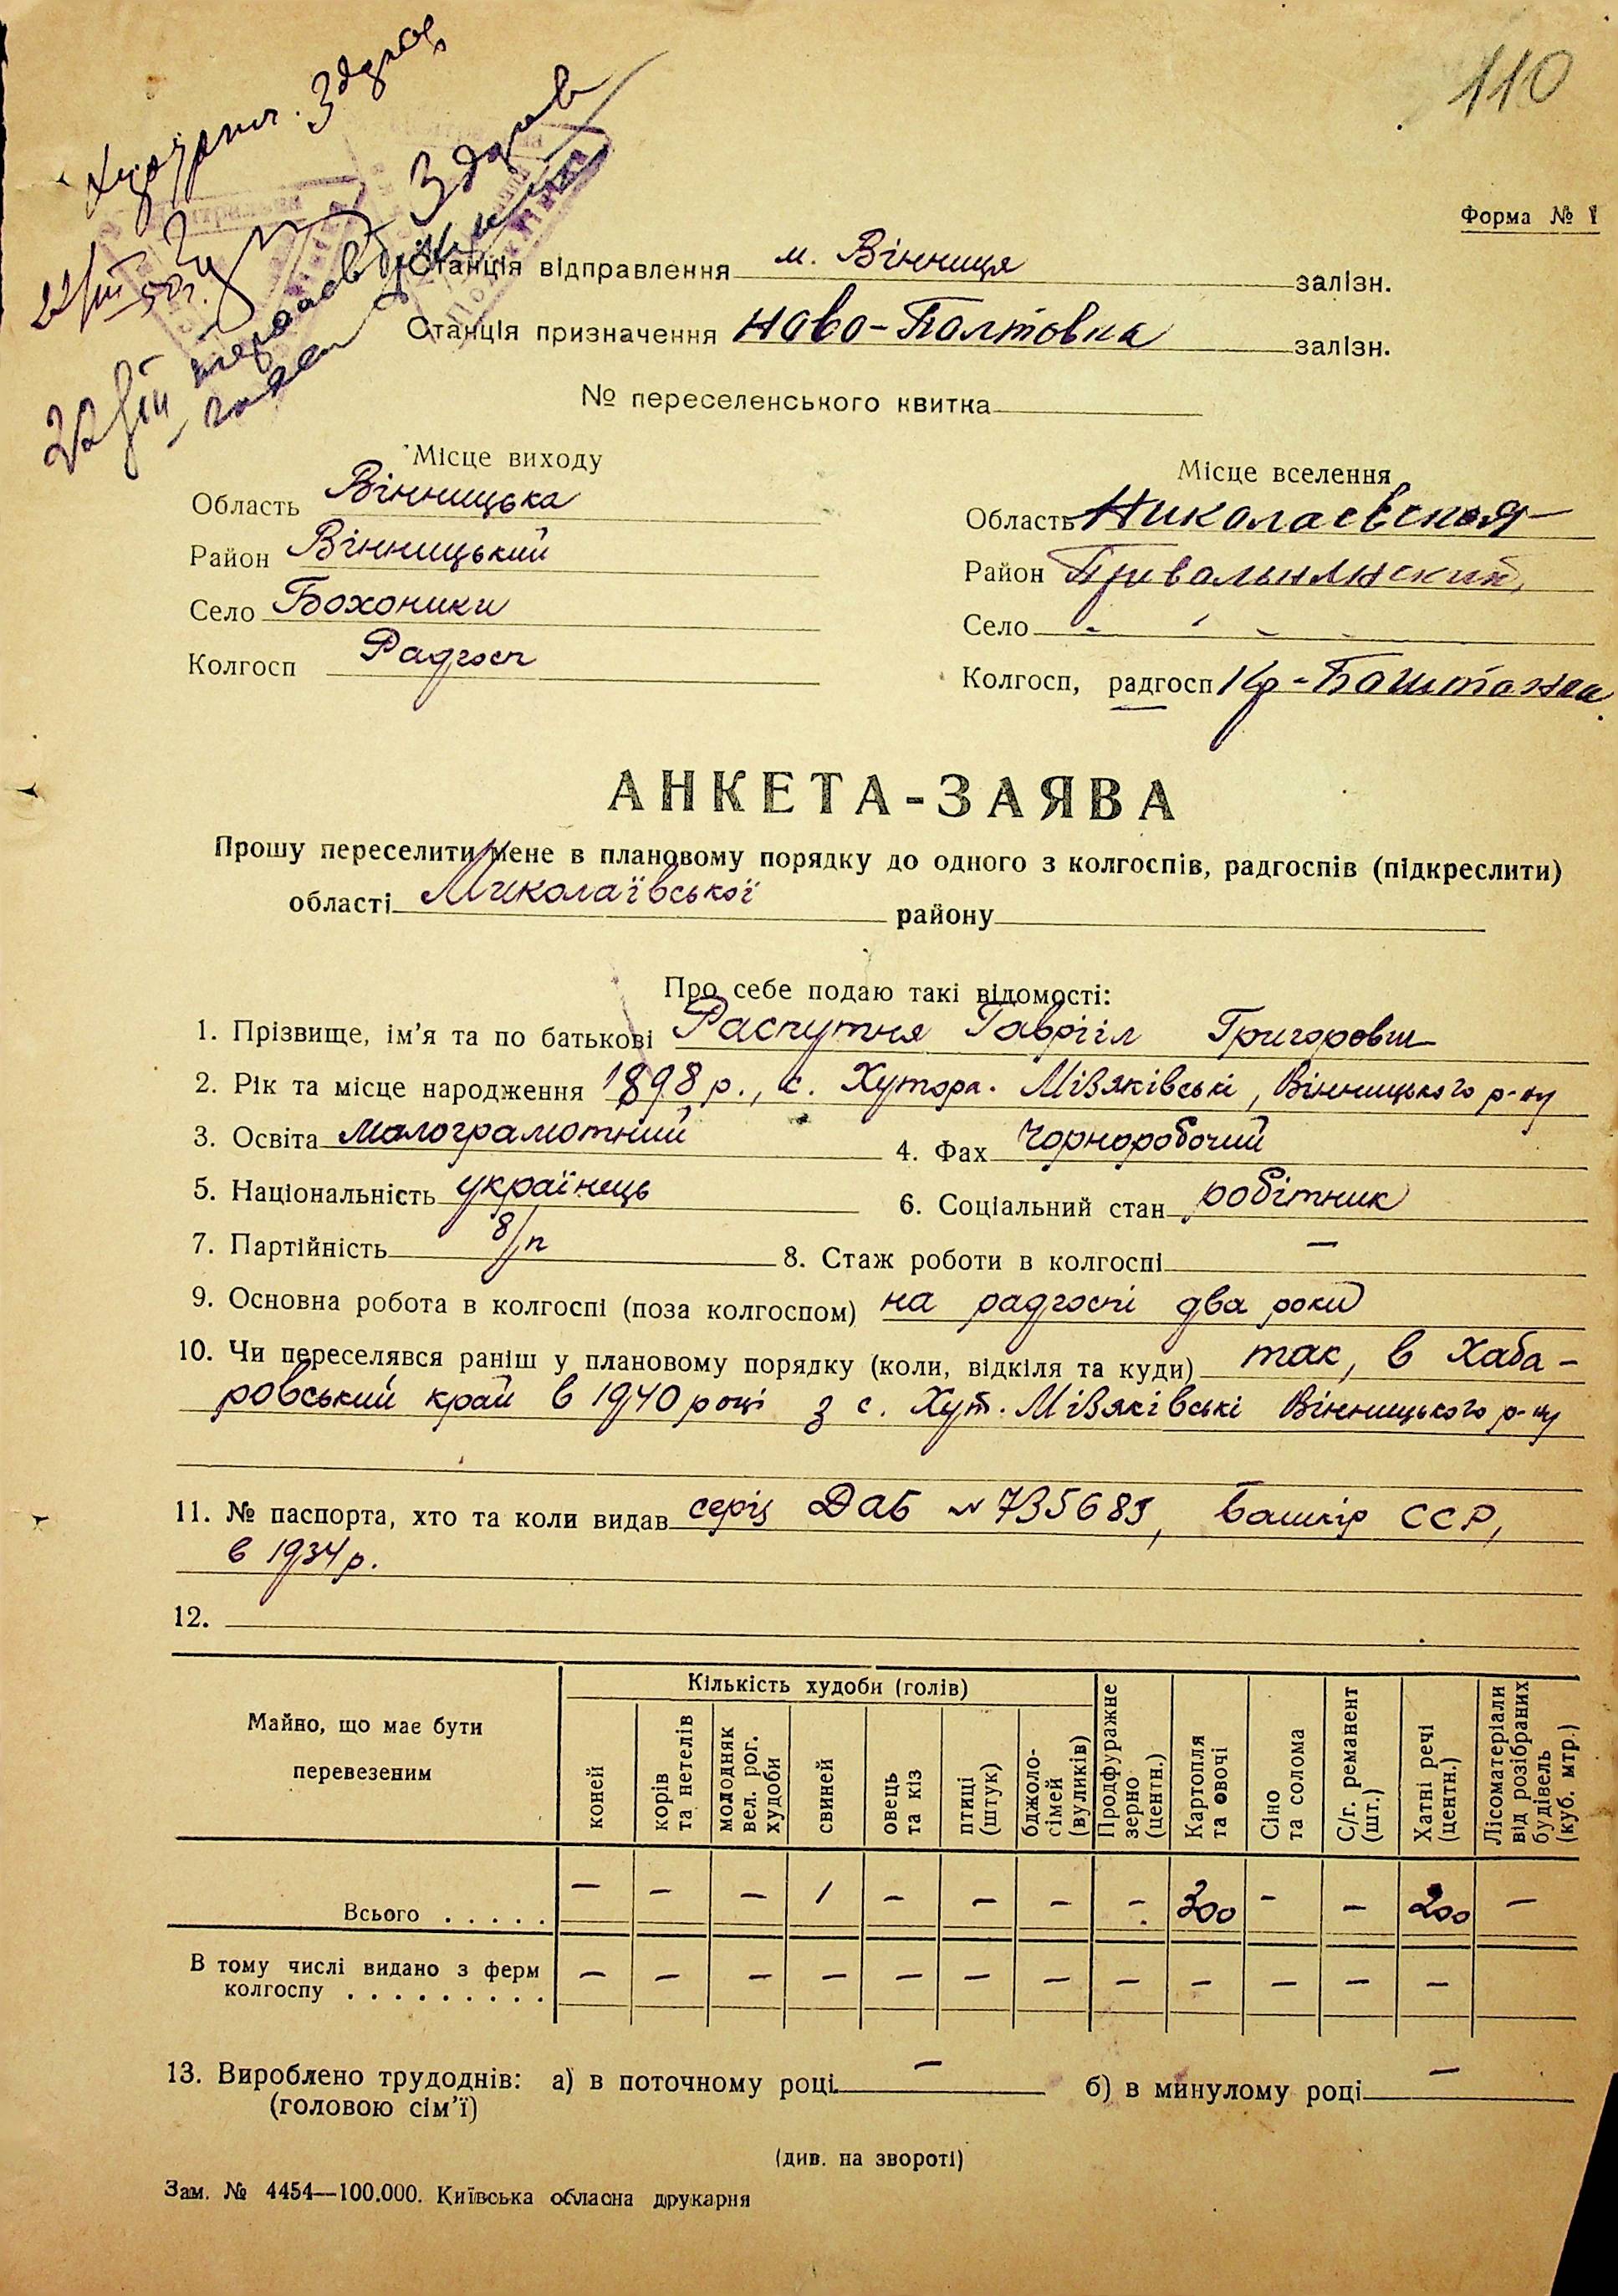 110
Хірург. Здоров
Здоров
Форма № 1
Станція відправлення м. Вінниця залізн.
Станція призначення Ново-Полтовка залізн.
№ переселенського квитка
Місце виходу
Область Вінницька
Район Вінницький
Село Бохоники
Колгосп Радгосп
Місце вселення
Область Николаевская
Район Привольнянский
Село - - - -
Колгосп, радгосп Кр-Баштанка
АНКЕТА-ЗАЯВА
Прошу переселити мене в плановому порядку до одного з колгоспів, радгоспів (підкреслити)
області Миколаївської району
Про себе подаю такі відомості:
1. Прізвище, ім'я та по батькові Распутня Гавріїл Григорович
2. Рік та місце народження 1898 р., с. Хутора. Мізяківські, Вінницького р-ну
3. Освіта малограмотний 4. Фах Чорноробочий
5. Національність українець 6. Соціальний стан робітник
7. Партійність б/п 8. Стаж роботи в колгоспі —
9. Основна робота в колгоспі (поза колгоспом) на радгоспі два роки
10. Чи переселявся раніш у плановому порядку (коли, відкіля та куди) так, в Хаба-
ровський край в 1940 році з с. Хут. Мізяківські Вінницького р-ну
11. № паспорта, хто та коли видав серія ДАБ № 735689, Башкір ССР,
в 1934 р.
12.
Майно, що має бути перевезеним
Кількість худоби (голів)
коней
корів та нетелів
молодняк вел. рог. худоби
свиней
овець та кіз
птиці (штук)
бджоло-сімей (вуликів)
Продфуражне зерно (центн.)
Картопля та овочі
Сіно та солома
С/г. реманент (шт.)
Хатні речі (центн.)
Лісоматеріали від розібраних будівель (куб. мтр.)
Всього . . . . . — — — 1 — — — — 300 - — 200 —
В тому числі видано з ферм
колгоспу . . . . . . . . . — — — — — — — — — — — —
13. Вироблено трудоднів: а) в поточному році — б) в минулому році —
(головою сім'ї)
(див. на звороті)
Зам. № 4454—100.000. Київська обласна друкарня